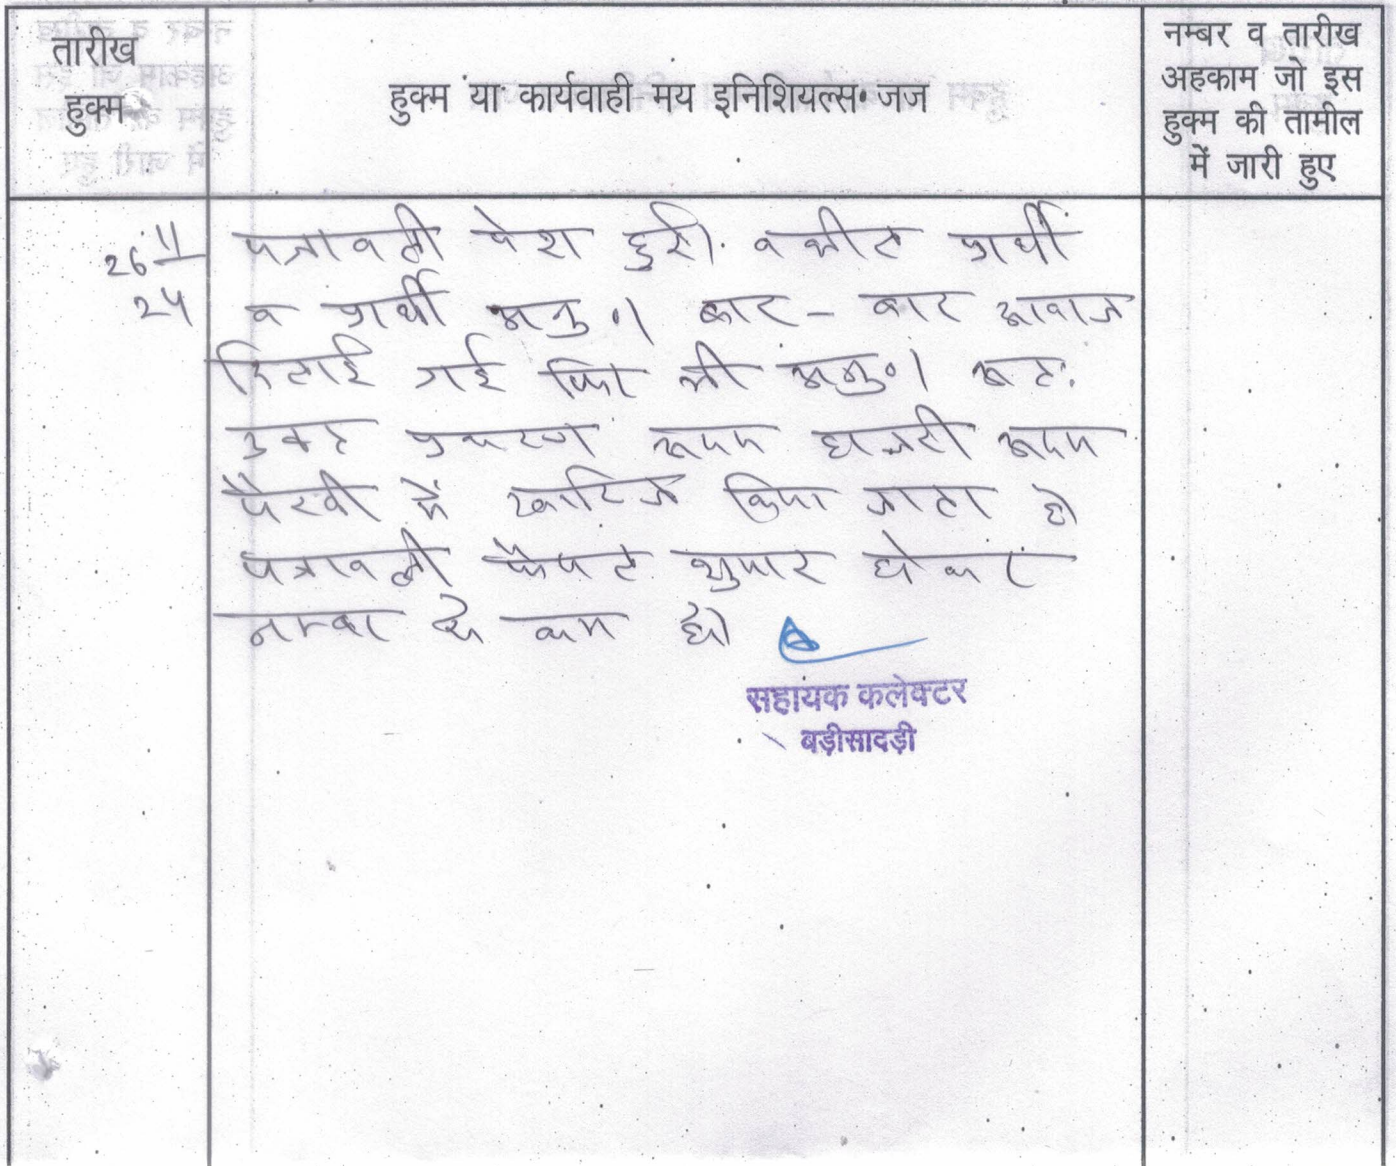 तारीख
हुक्म
हुक्म या कार्यवाही मय इनिशियल्स जज
नम्बर व तारीख
अहकाम जो इस
हुक्म की तामील
में जारी हुए
26 11
24
पत्रावली पेश हुई। वकील प्रार्थी
व प्रार्थी अनु०। बार - बार आवाज
दिलाई गई फिर भी अनु०। अतः
उक्त प्रकरण अदम हाजरी अदम
पैरवी में खारिज किया जाता है।
पत्रावली फैसल शुमार होकर
नम्बर से कम हो।
सहायक कलेक्टर
बड़ीसादड़ी